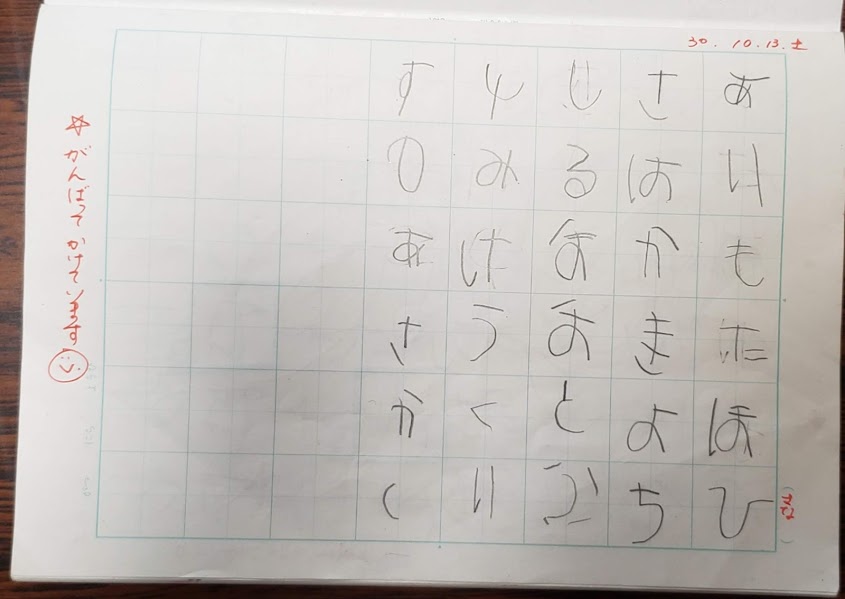 30.10.13.土
あけもたほひ
さはかきよち
むるおおとふ
んみけうくり
すのあさかく
☆がんばってかけています